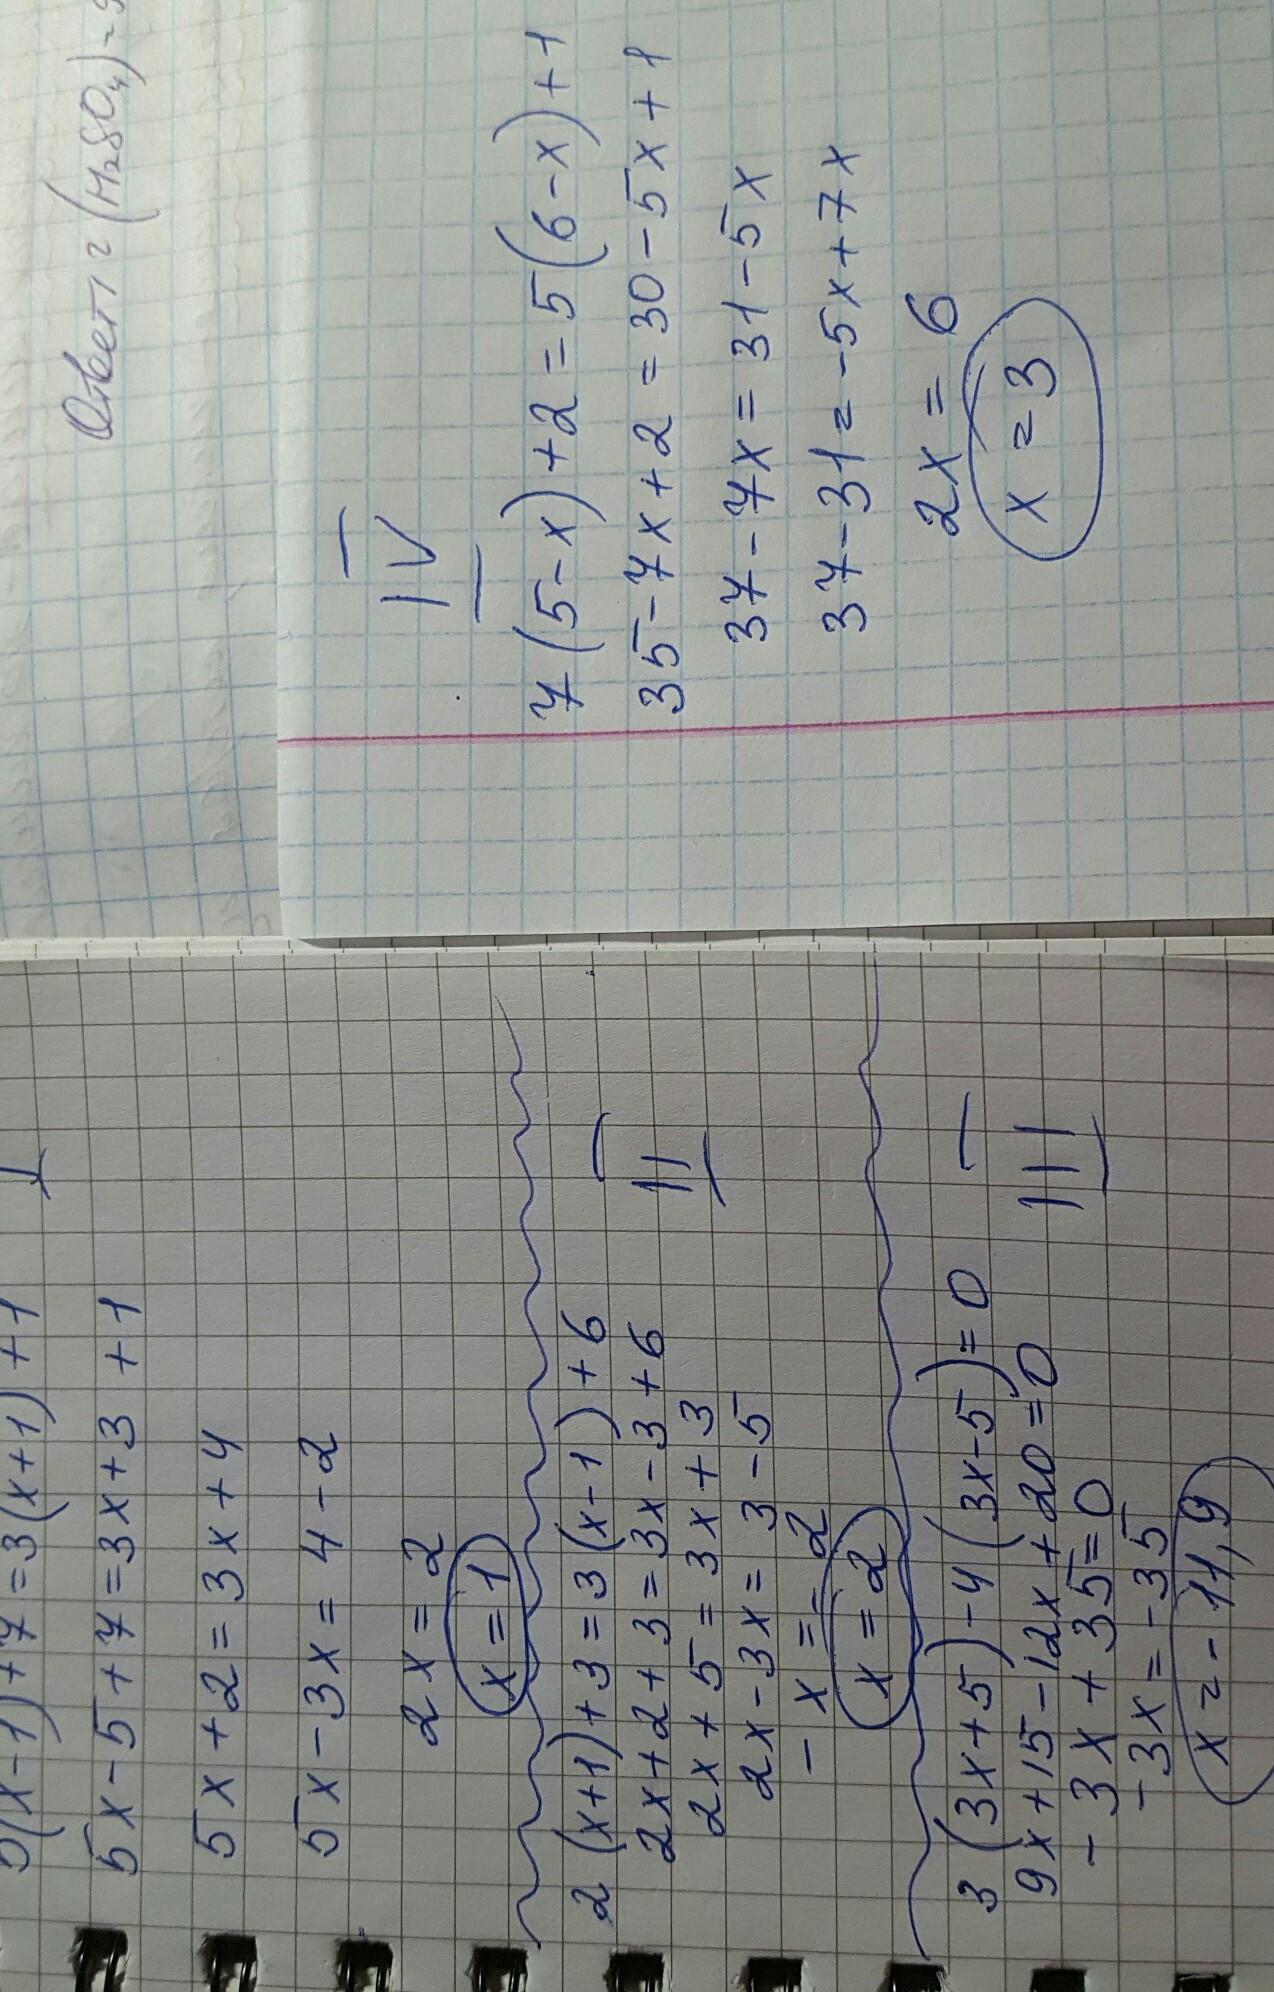 5(x-1)+7=3(x+1)+1
I
5x-5+7=3x+3+1
5x+2=3x+4
5x-3x=4-2
2x=2
x=1
2(x+1)+3=3(x-1)+6
II
2x+2+3=3x-3+6
2x+5=3x+3
2x-3x=3-5
-x=-2
x=2
3(3x+5)-4(3x-5)=0
III
9x+15-12x+20=0
-3x+35=0
-3x=-35
x=-11,9
Ответ: (H₂SO₄)-
IV
7(5-x)+2=5(6-x)+1
35-7x+2=30-5x+1
37-7x=31-5x
37-31=-5x+7x
2x=6
x=3